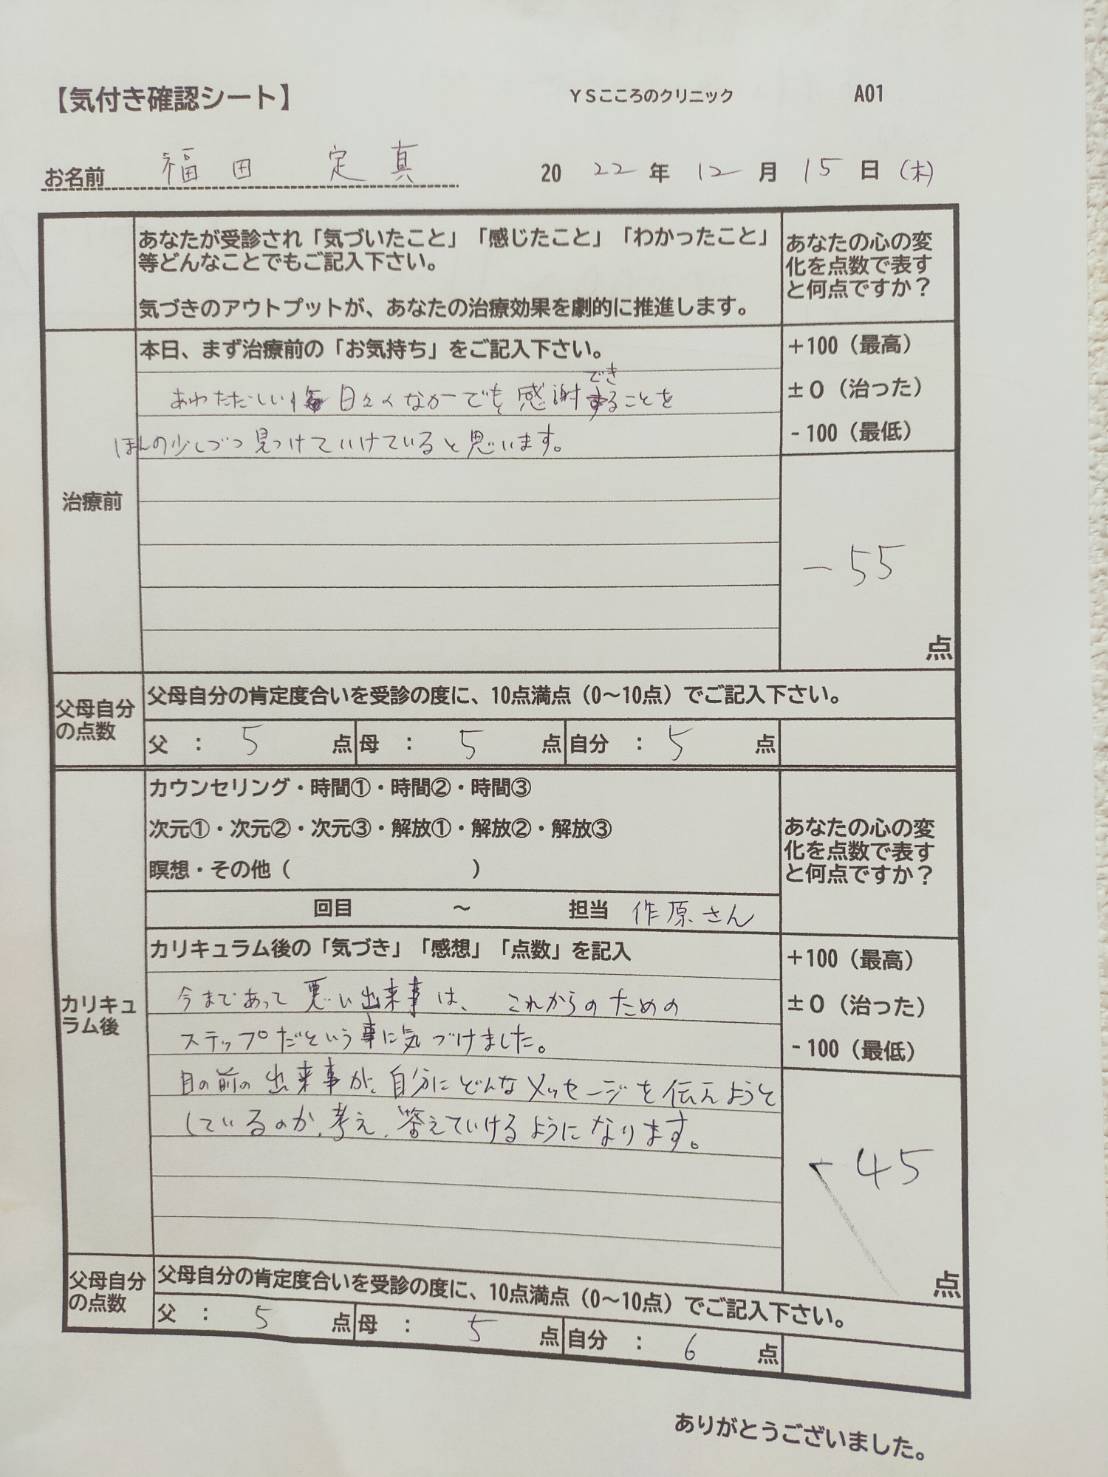 【気付き確認シート】 YSこころのクリニック A01
お名前 福田 定真 2022年12月15日(木)
あなたが受診され「気づいたこと」「感じたこと」「わかったこと」
等どんなことでもご記入下さい。
気づきのアウトプットが、あなたの治療効果を劇的に推進します。
あなたの心の変
化を点数で表す
と何点ですか？
治療前
本日、まず治療前の「お気持ち」をご記入下さい。
あわただしい 日々のなかでも、感謝できることを
ほんの少しづつ見つけていけていると思います。
+100（最高）
±0（治った）
-100（最低）
-55
点
父母自分
の点数
父母自分の肯定度合いを受診の度に、10点満点（0～10点）でご記入下さい。
父 ： 5 点 母 ： 5 点 自分 ： 5 点
カリキュ
ラム後
カウンセリング・時間①・時間②・時間③
次元①・次元②・次元③・解放①・解放②・解放③
瞑想・その他（ ）
回目 ～ 担当 作原さん
あなたの心の変
化を点数で表す
と何点ですか？
カリキュラム後の「気づき」「感想」「点数」を記入
今まであって悪い出来事は、これからのための
ステップだという事に気づけました。
目の前の出来事が、自分にどんなメッセージを伝えようと
しているのか、考え、答えていけるようになります。
+100（最高）
±0（治った）
-100（最低）
-45
点
父母自分
の点数
父母自分の肯定度合いを受診の度に、10点満点（0～10点）でご記入下さい。
父 ： 5 点 母 ： 5 点 自分 ： 6 点
ありがとうございました。